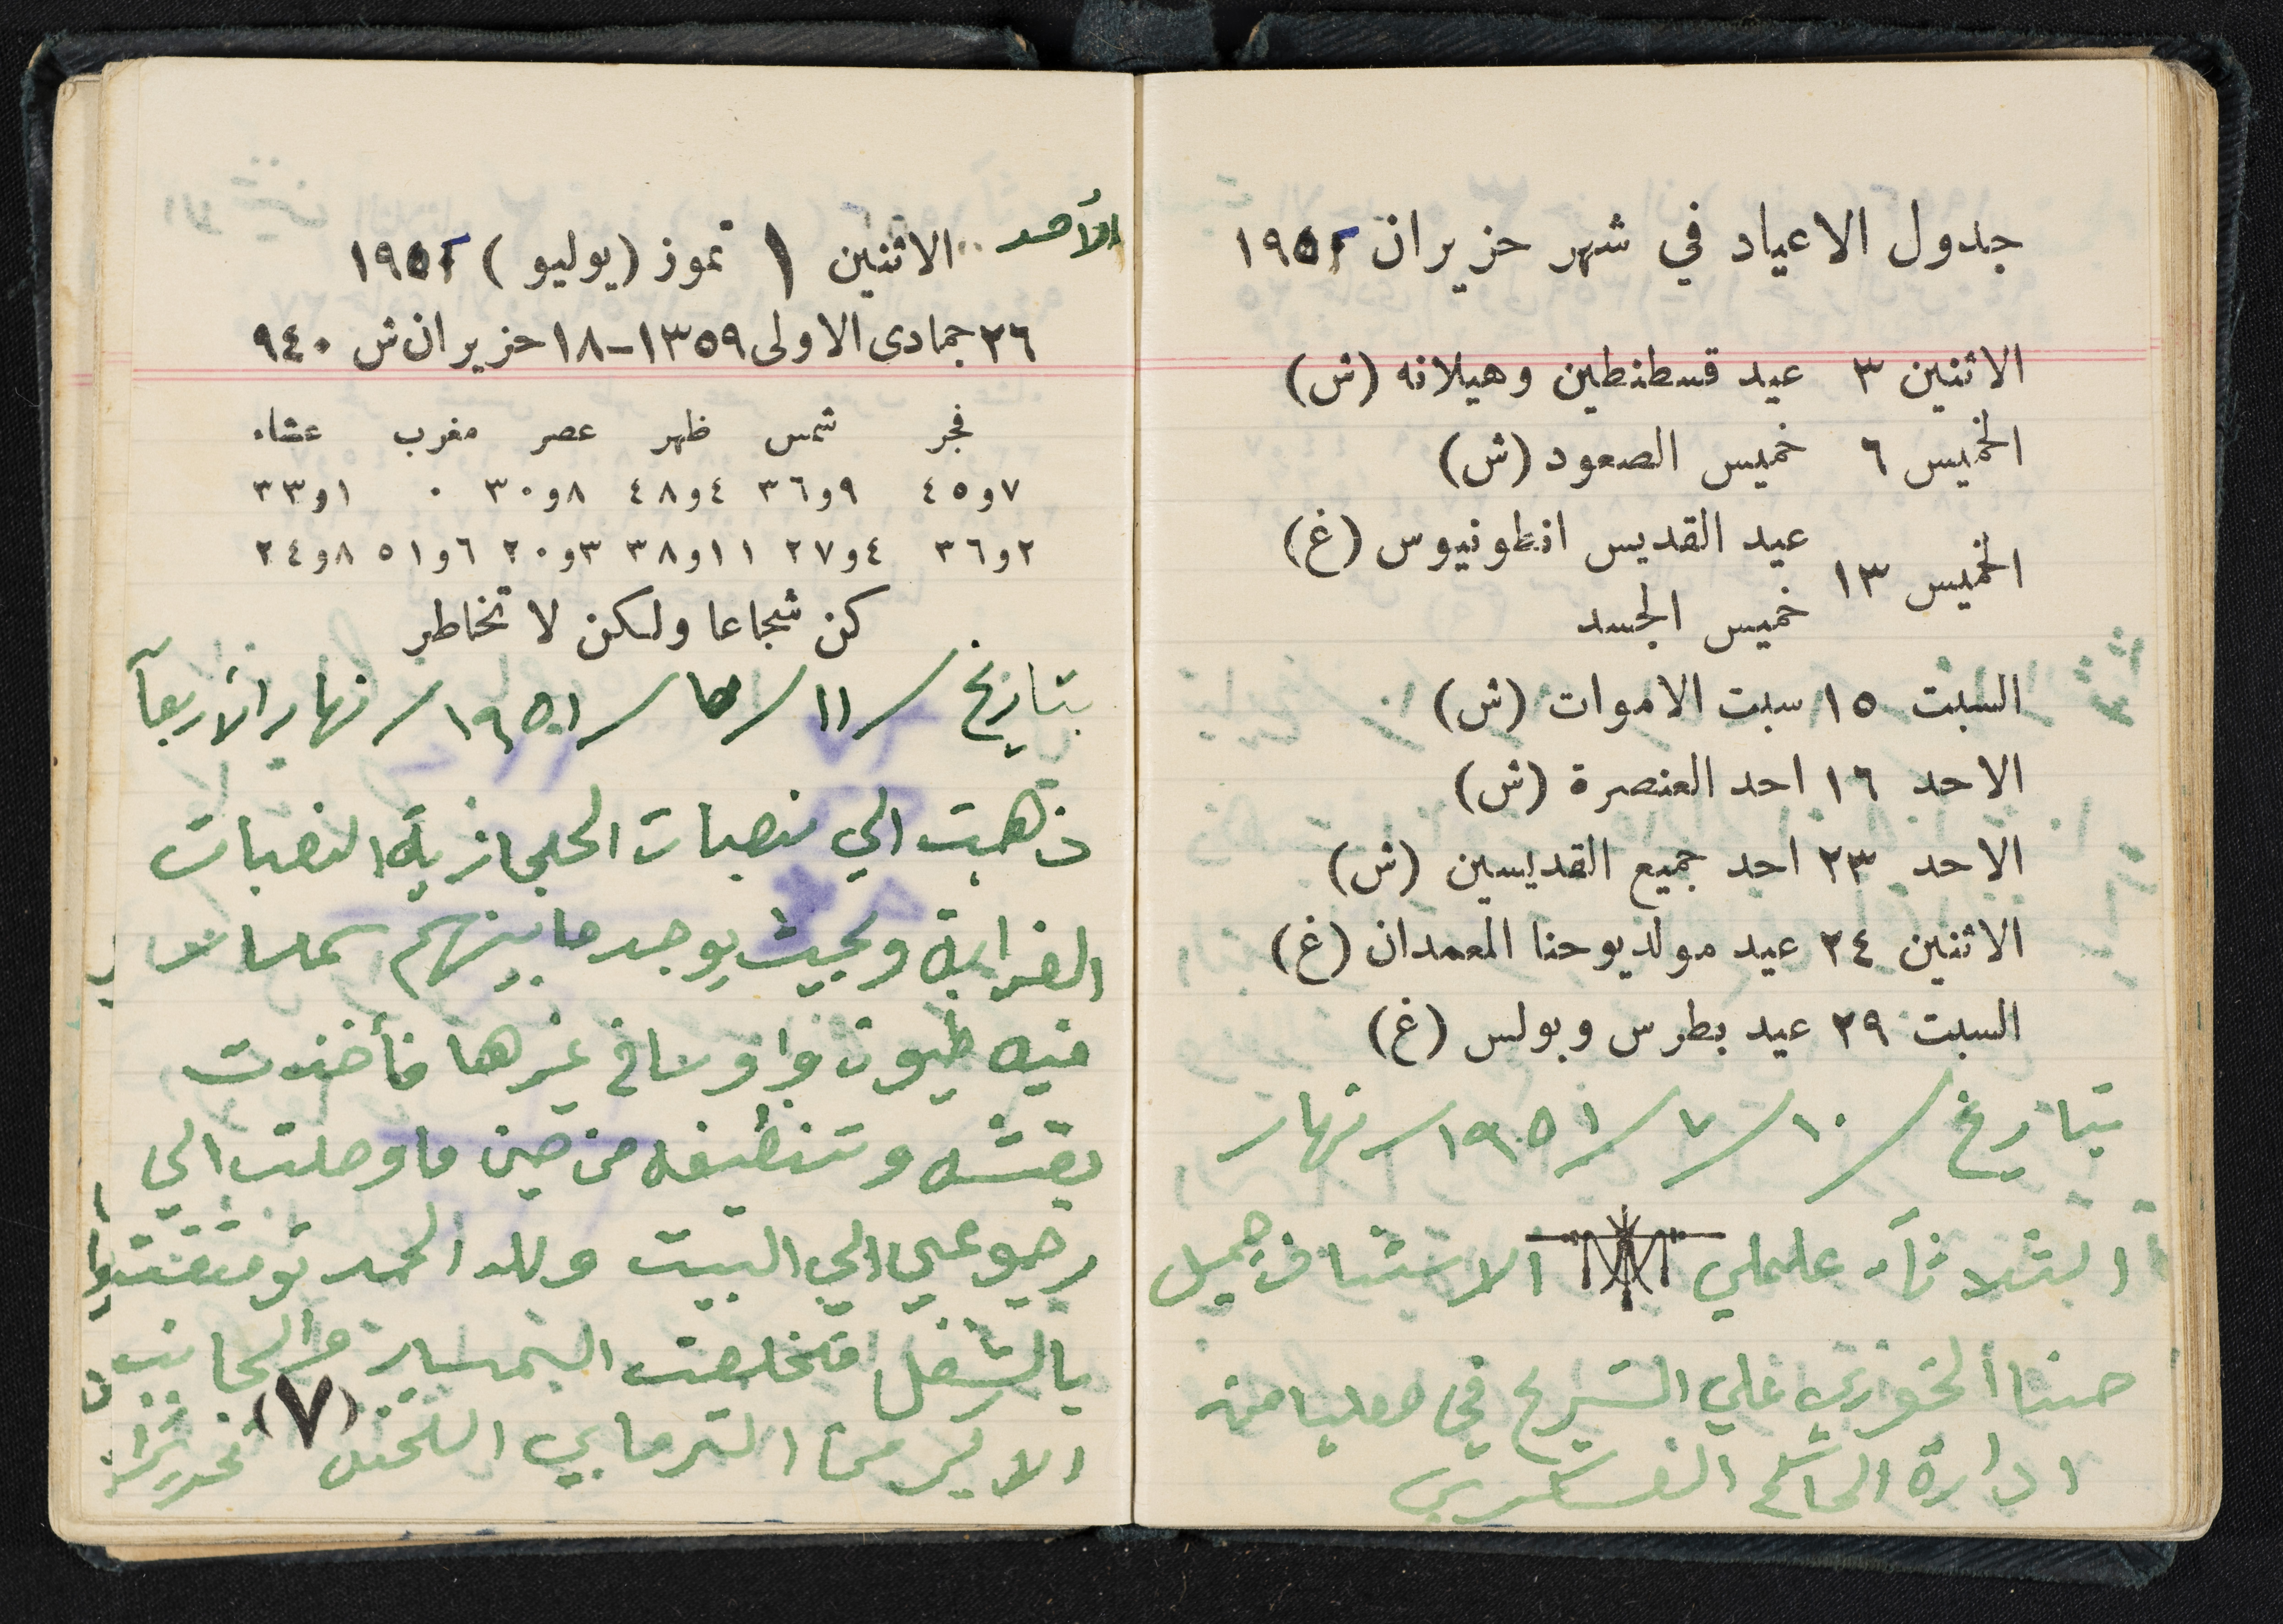 جدول الاعياد في شهر حزيران ١٩٥٢
الاثنين ٣ عيد قسطنطين وهيلانه (ش)
الخميس ٦ خميس الصعود (ش)
الخميس ١٣ عيد القديس انطونيوس (غ)
خميس الجسد
السبت ١٥ سبت الاموات (ش)
الاحد ١٦ احد العنصرة (ش)
الاحد ٢٣ احد جميع القديسين (ش)
الاثنين ٢٤ عيد مولد يوحنا المعمدان (غ)
السبت ٢٩ عيد بطرس وبولس (غ)
بتاريخ / ١٠ / ٧ / ١٩٥١ / نهار
الثلاثآء الاستاذ جميل
حنا الخوري علي في معليا من
ادارة الحاكم العسكري
الأحد
الاثنين ١ تموز (يوليو) ١٩٥٢
٢٦ جمادى الاولى ١٣٥٩-١٨ حزيران ش ٩٤٠
فجر شمس ظهر عصر مغرب عشاء
٧و٤٥ ٩و٣٦ ٤و٤٨ ٨و٣٠ ٠ ١و٣٣
٢و٣٦ ٤و٢٧ ١١و٣٨ ٣و٢٠ ٦و٥١ ٨و٢٤
كن شجاعا ولكن لا تخاطر
بتاريخ / ١١ / / ١٩٥١ / نهار الأربعآ
ذهبت الي نصبات الحجازية النصبات
وبحيث يوجد ما بينهم
فيه غيرها فأخذت
وتنظيفه من حين ما وصلت الي
رجوعي الي البيت ولله الحمد توفقت
بالشغل فخلصت
من
(٧)